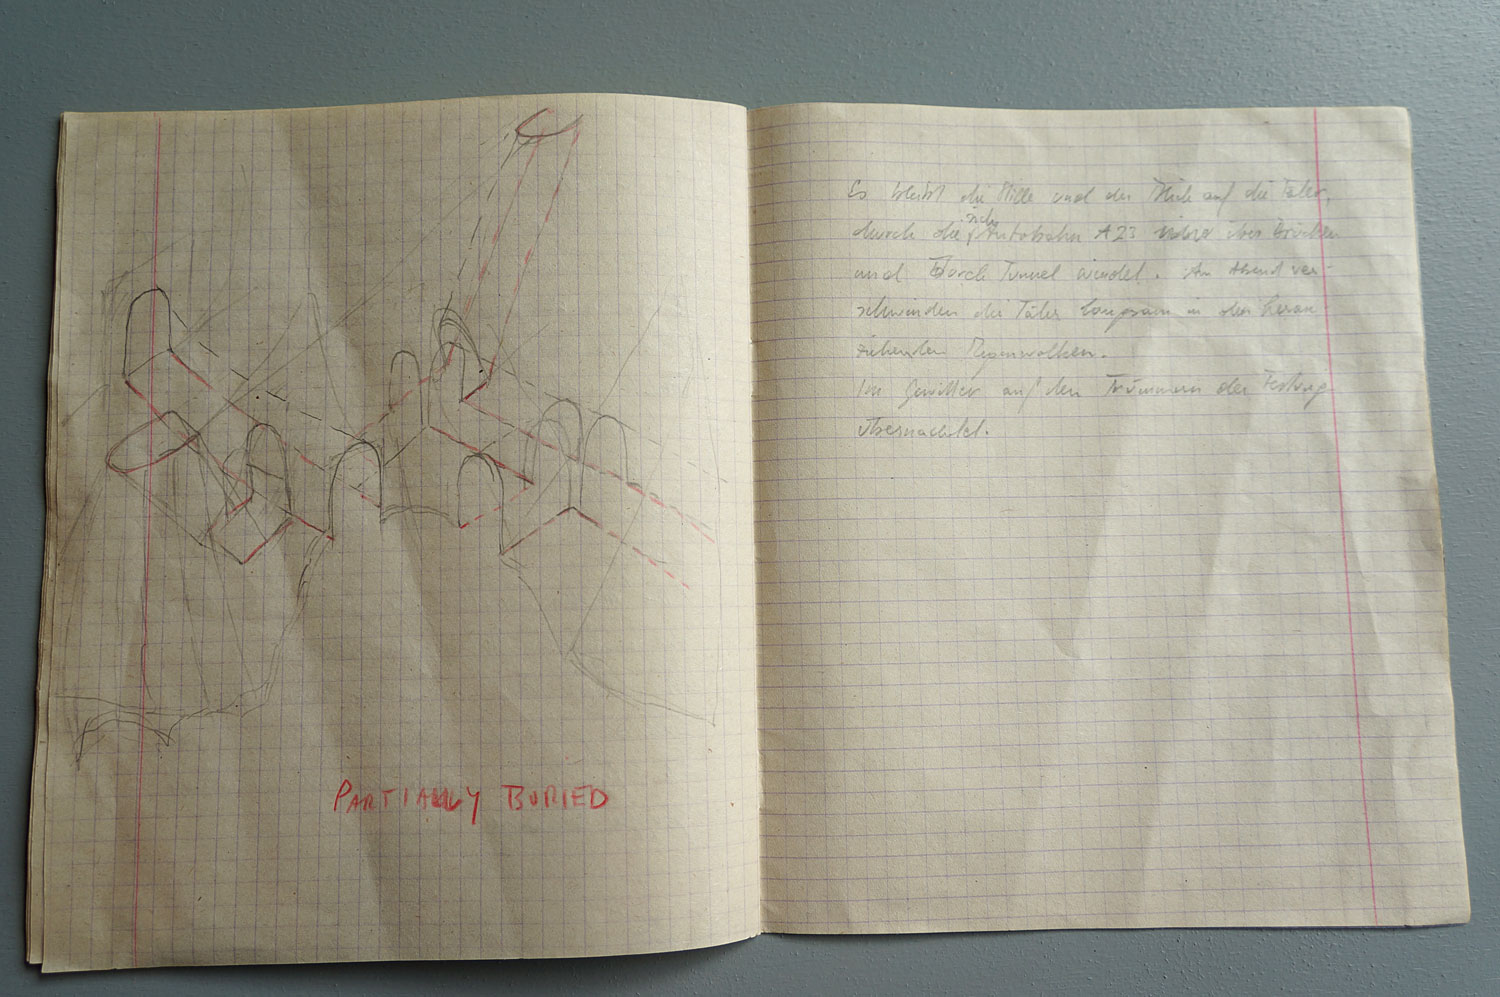 PARTIALLY BURIED
Es bleibt die Stille und der Blick auf die Täler,
durch die sich Autobahn A23 über Brücken
und durch Tunnel windet. Am Abend ver-
schwinden die Täler langsam in den heran
ziehenden Regenwolken.
Im Gewitter auf den Trümmern der Festung
übernachtet.